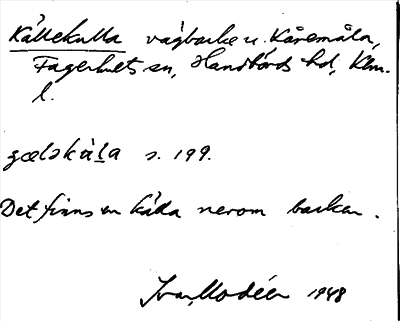 Källekulla vägbacke v. Kåremåla,
Fagerhults sn, Handbörds hd, Klm.
l.
s. 199.
Det finns en källa nerom backen.
Ivar Modéer 1948